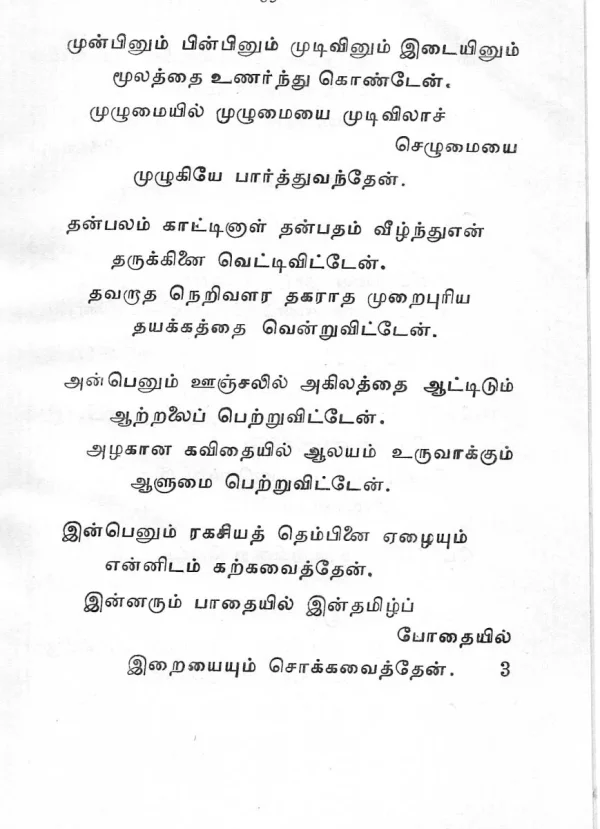 முன்பினும் பின்பினும் முடிவினும் இடையினும்
மூலத்தை உணர்ந்து கொண்டேன்.
முழுமையில் முழுமையை முடிவிலாச்
செழுமையை
முழுகியே பார்த்துவந்தேன்.
தன்பலம் காட்டினாள் தன்பதம் வீழ்ந்துஎன்
தருக்கினை வெட்டிவிட்டேன்.
தவறாத நெறிவளர தகராத முறைபுரிய
தயக்கத்தை வென்றுவிட்டேன்.
அன்பெனும் ஊஞ்சலில் அகிலத்தை ஆட்டிடும்
ஆற்றலைப் பெற்றுவிட்டேன்.
அழகான கவிதையில் ஆலயம் உருவாக்கும்
ஆளுமை பெற்றுவிட்டேன்.
இன்பெனும் ரகசியத் தெம்பினை ஏழையும்
என்னிடம் கற்கவைத்தேன்.
இன்னரும் பாதையில் இன்தமிழ்ப்
போதையில்
இறையையும் சொக்கவைத்தேன். 3